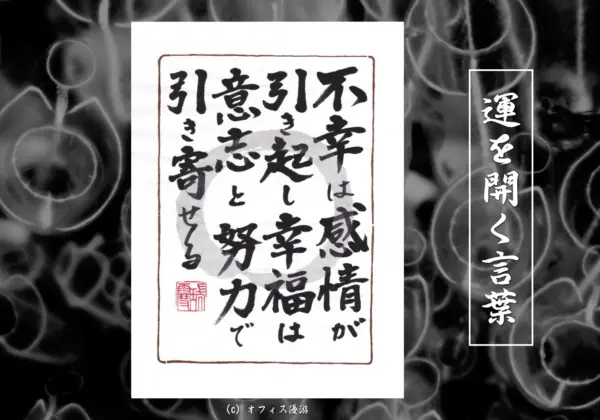 運を開く言葉
不幸は感情が
引き起し幸福は
意志と努力で
引き寄せる
(C) オフィス優游